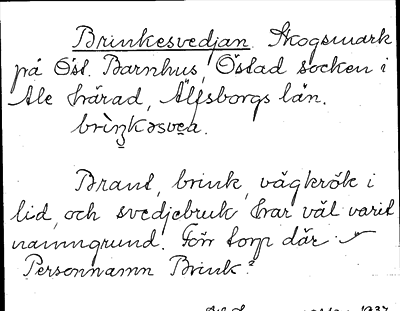 Brinkesvedjan. Skogsmark
på Öst. Barnhus, Östad socken i
Ale härad, Älfsborgs län.
brìŋkəsvea.
Brant, brink, vägkrök i
lid, och svedjebruk har väl varit
namngrund. Förr torp där
Personnamn Brink?
1937